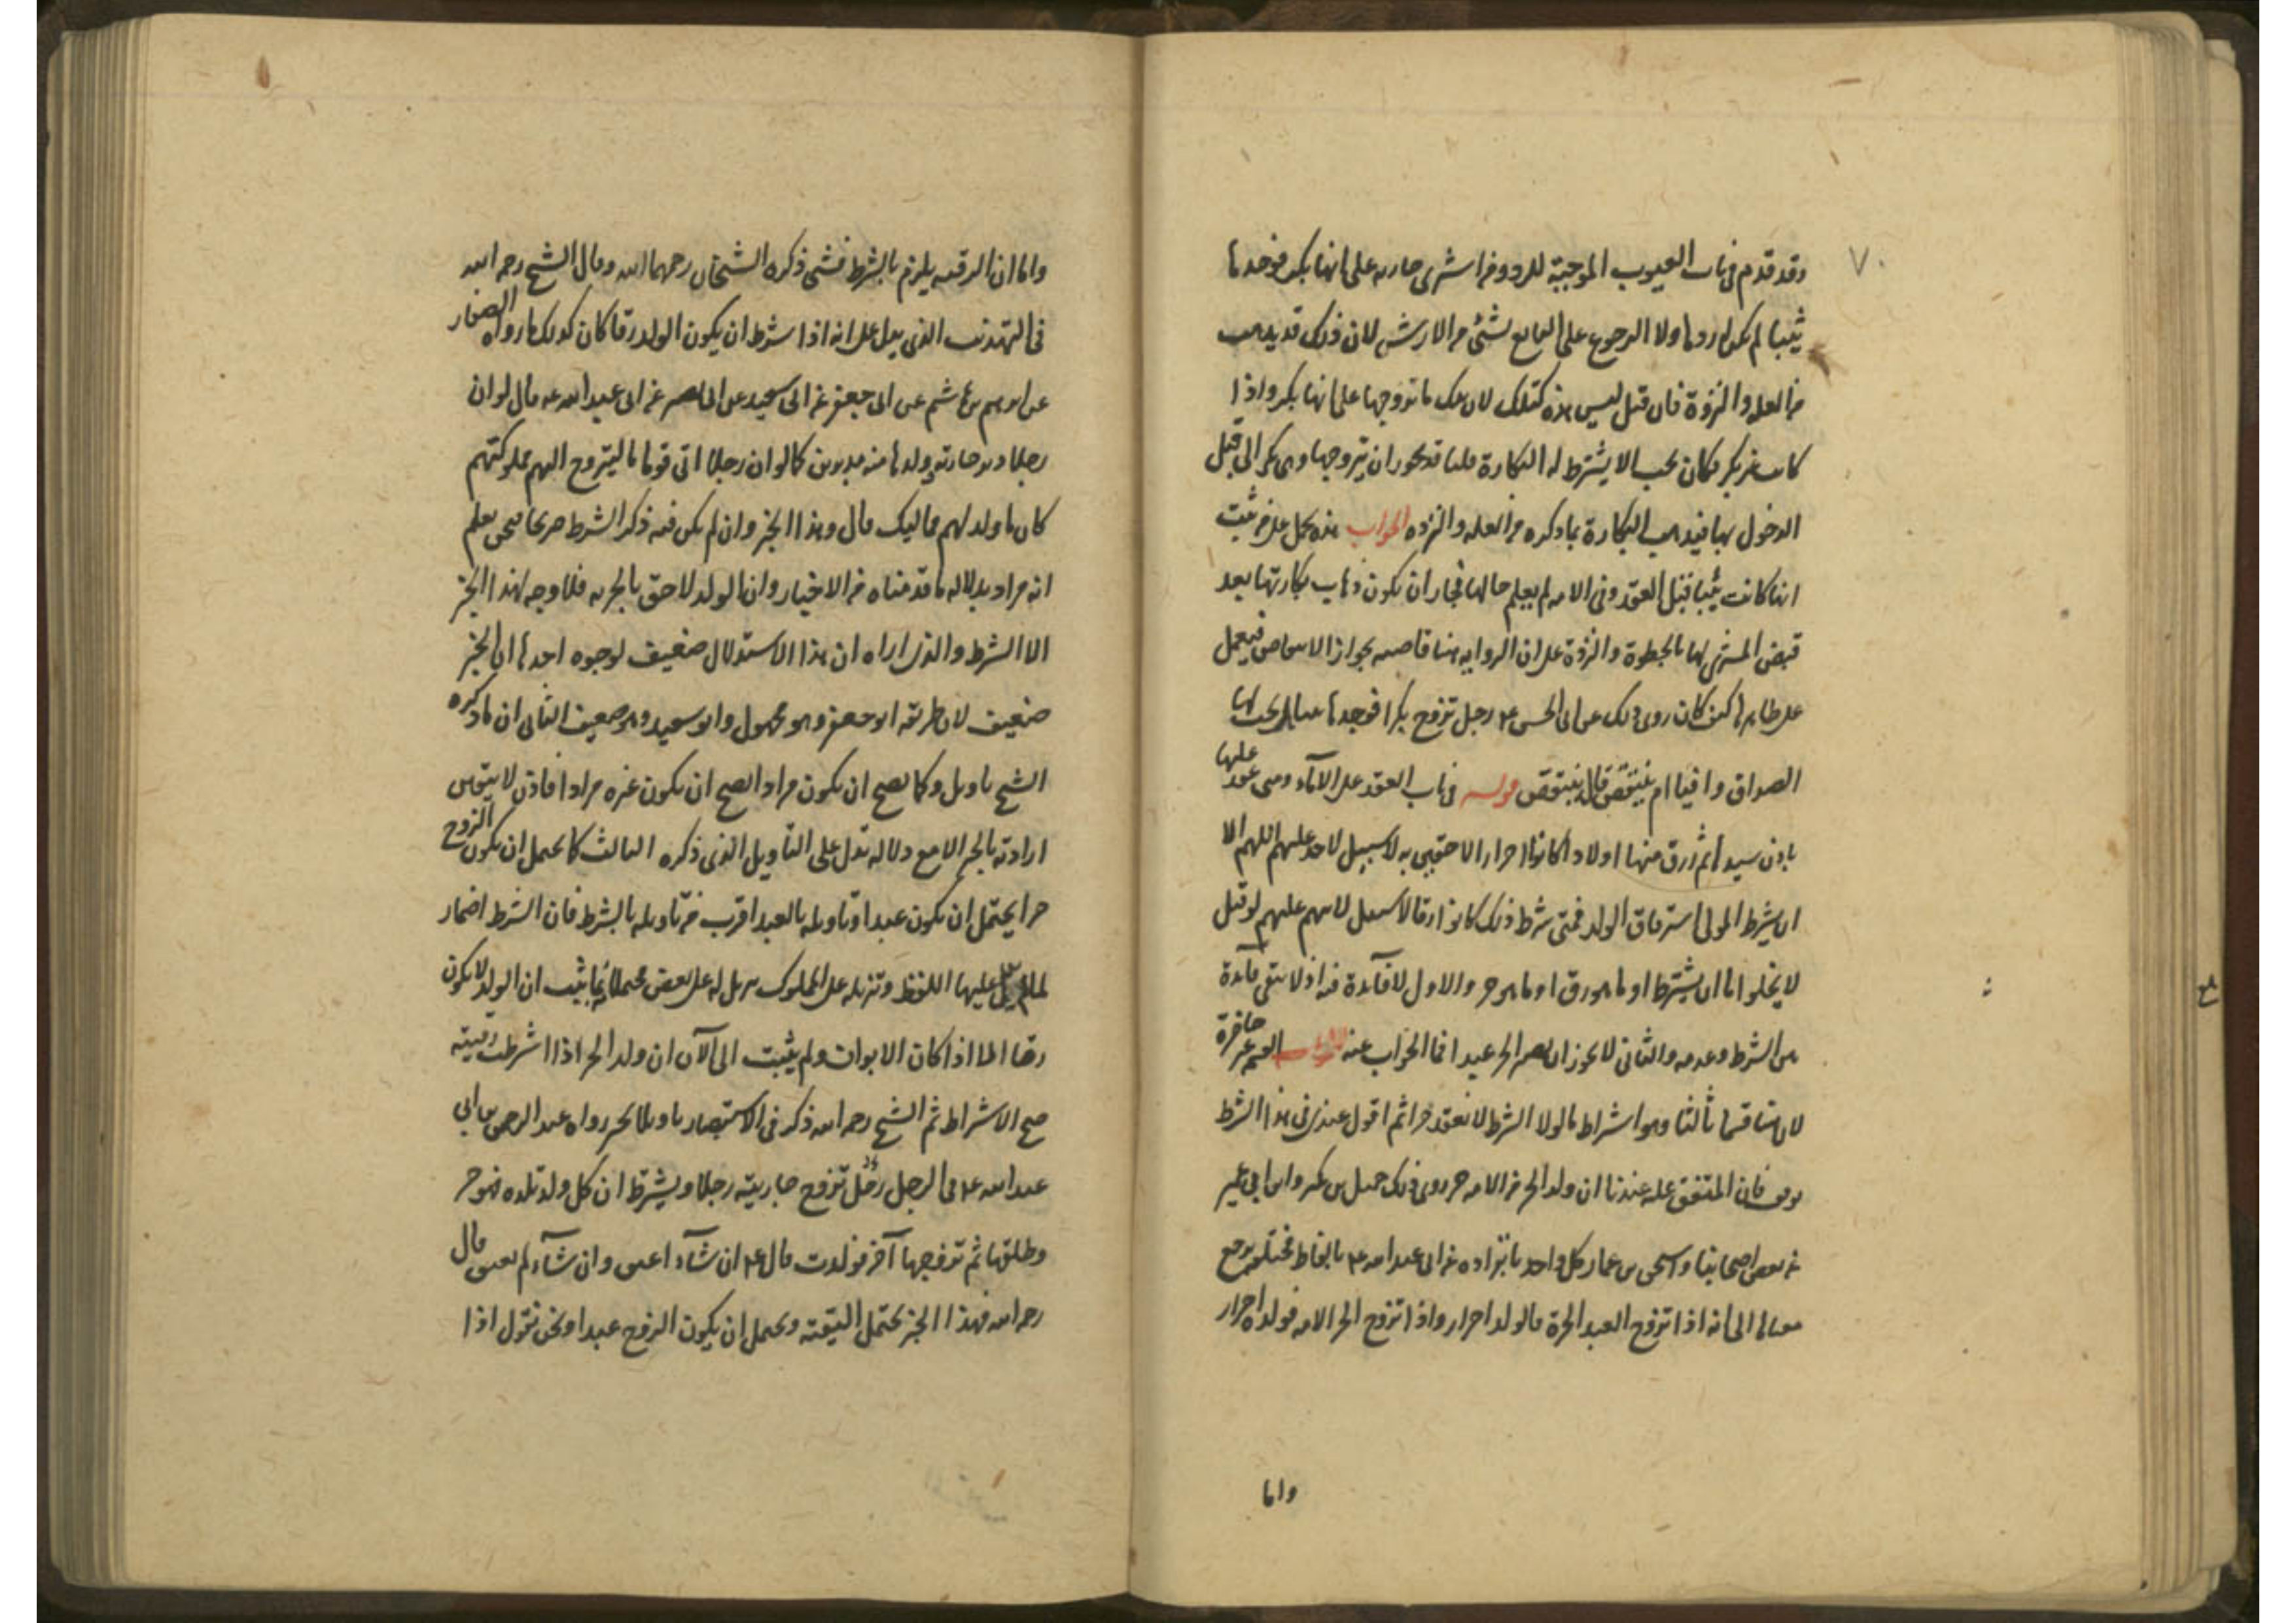 ٧٠
وقد قدم فى باب العيوب الموجبة للرد ومن اشترى جارية على انها بكر فوجدها
ثيبا لم يكن له ردها ولا الرجوع على البايع بشئ من الارش لان ذلك قد يذهب
من العلة والنزوة فان قيل ليس هذه كتلك لان تلك ما تزوجها على انها بكر واذا
كانت غير بكر فكان يجب الا يشترط له البكارة قلنا قد يجوز ان يتزوجها وهى بكر الى قبل
الدخول بها فيذهب البكارة بما ذكره من العلة والنزوة الجواب هذه يحمل على من ثبت
انها كانت ثيبا قبل العقد وفى الامة لم يعلم حالها فجاز ان يكون ذهاب بكارتها بعد
قبض المشترى لها بالخطوة والنزوة على ان الرواية هنا قاضية بجواز الانتقاص فيعمل
على ظاهرها كيف كان روى ذلك عن ابى الحسن ع رجل تزوج بكرا فوجدها ثيبا هل يجب لها
الصداق وافيا ام ينتقص قال ينتقص قوله فى باب العقد على الاماء ومتى عقد عليها
باذن سيدها ثم رزق منها اولادا كانوا احرارا لاحقين به لا سبيل لاحد عليهم اللهم الا
ان يشرط المولى استرقاق الولد فمتى شرط ذلك كانوا ارقا لا سبيل لابيهم عليهم لو قيل
لا يخلو اما ان يشترط او ما هو رق او ما هو حر والاول لا فائدة فيه اذ لا يبقى فائدة
بين الشرط وعدمه والثانى لا يجوز ان يصير الحر عبدا فما الجواب عنه الجواب القسمة غير حاصرة
لان هنا قسما ثالثا وهو اشتراط ما لولا الشرط لانعقد حرا ثم اقول عندى فى هذا الشرط
توقف فان المتفق عليه عندنا ان ولد الحر من الامة حر روى ذلك جميل بن بكير وابن ابى عمير
عن بعض اصحابنا واسحق بن عمار وكل واحد بانفراده عن ابى عبد الله ع بالفاظ مختلفة يرجع
معناها الى انه اذا تزوج العبد الحرة فالولد احرار واذا تزوج الحر الامة فولده احرار
واما
واما ان الرقية يلزم بالشرط فشى ذكره الشيخان رحمهما الله وقال الشيخ رحمه الله
فى التهذيب الذى يدل على انه اذا شرط ان يكون الولد رقا كان كذلك ما رواه الصفار
عن ابرهيم بن هاشم عن ابى جعفر عن ابى سعيد عن ابى بصير عن ابى عبد الله ع قال لو ان
رجلا دبر جاريته فولدها منه مدبرون كما لو ان رجلا اتى قوما فليتزوج اليهم مملوكتهم
كان ما ولد لهم مماليك قال وهذا الخبر وان لم يكن فيه ذكر الشرط صريحا فنحن نعلم
انه مراد بدلالة ما قدمناه من الاخبار وان الولد لاحق بالحرية فلا وجه لهذا الخبر
الا الشرط والذى اراه ان هذا الاستدلال ضعيف لوجوه احدها ان الخبر
ضعيف لان طريقه ابو جعفر وهو مجهول وابو سعيد وهو ضعيف الثانى ان ما ذكره
الشيخ تاويل وكما يصح ان يكون مرادا يصح ان يكون غيره مرادا فاذن لا يتعين
ارادته بالخبر الا مع دلالة تدل على التأويل الذى ذكره الثالث كما يحتمل ان يكون الزوج
حرا يحتمل ان يكون عبدا وتاويله بالعبد اقرب من تاويله بالشرط فان الشرط اضمار
لما لم يدل عليها اللفظ وتنزيله على المملوك تنزيل له على بعض محتملاته الرابع ثبت ان الولد لا يكون
رقا الا اذا كان الابوان ولم يثبت الى الآن ان ولد الحر اذا اشترطت رقيته
صح الاشتراط ثم الشيخ رحمه الله ذكر فى الاستبصار تاويلا لخبر رواه عبد الرحمن بن ابى
عبد الله ع فى الرجل يزوج جاريته رجلا ويشترط ان كل ولد تلده فهو حر
وطلقها ثم تزوجها آخر فولدت قال ع ان شاء اعتق وان شاء لم يعتق قال
رحمه الله فهذا الخبر يحتمل التقية ويحتمل ان يكون الزوج عبدا ونحن نقول اذا